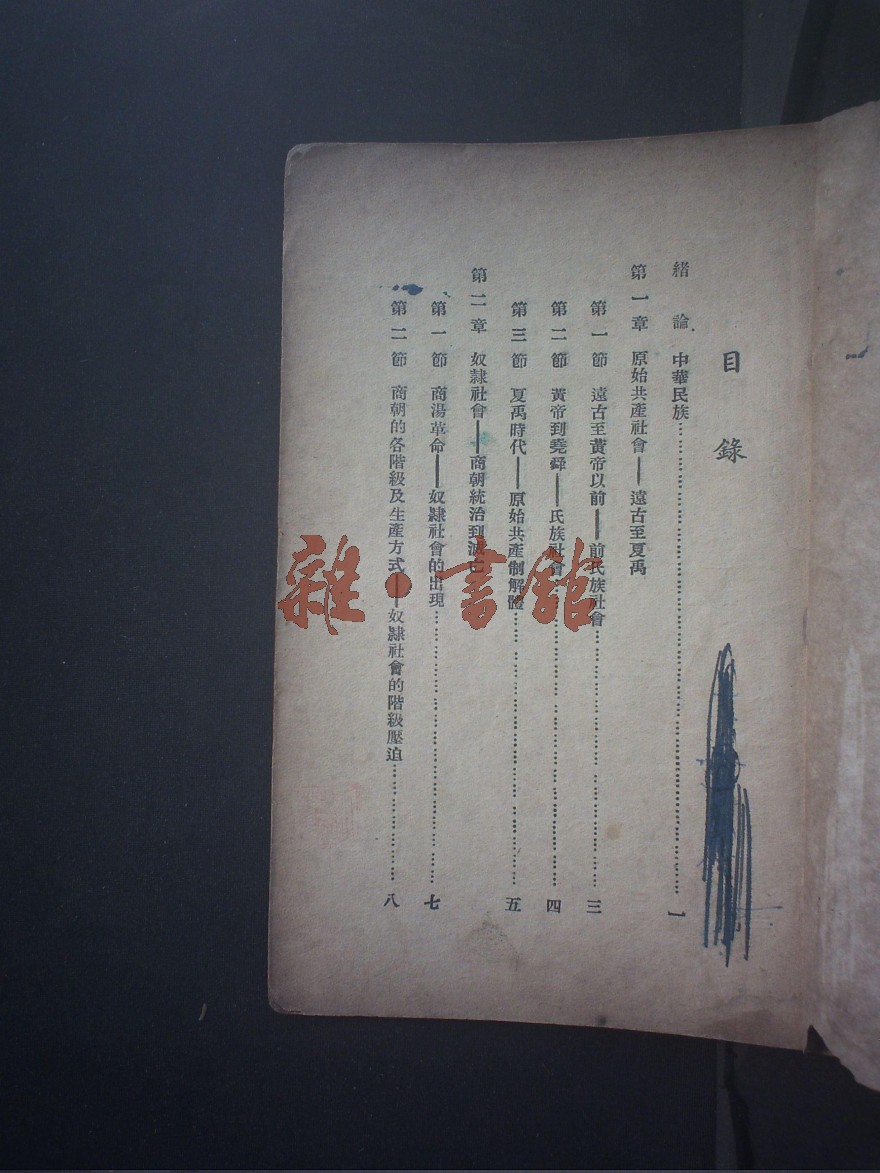 目錄
緒論 中華民族……一
第一章 原始共產社會——遠古至夏禹
第一節 遠古至黃帝以前——前氏族社會……三
第二節 黃帝到堯舜——氏族社會……四
第三節 夏禹時代——原始共產制解體……五
第二章 奴隸社會——商朝統治到滅亡
第一節 商湯革命——奴隸社會的出現……七
第二節 商朝的各階級及生產方式——奴隸社會的階級壓迫……八
雜·書館